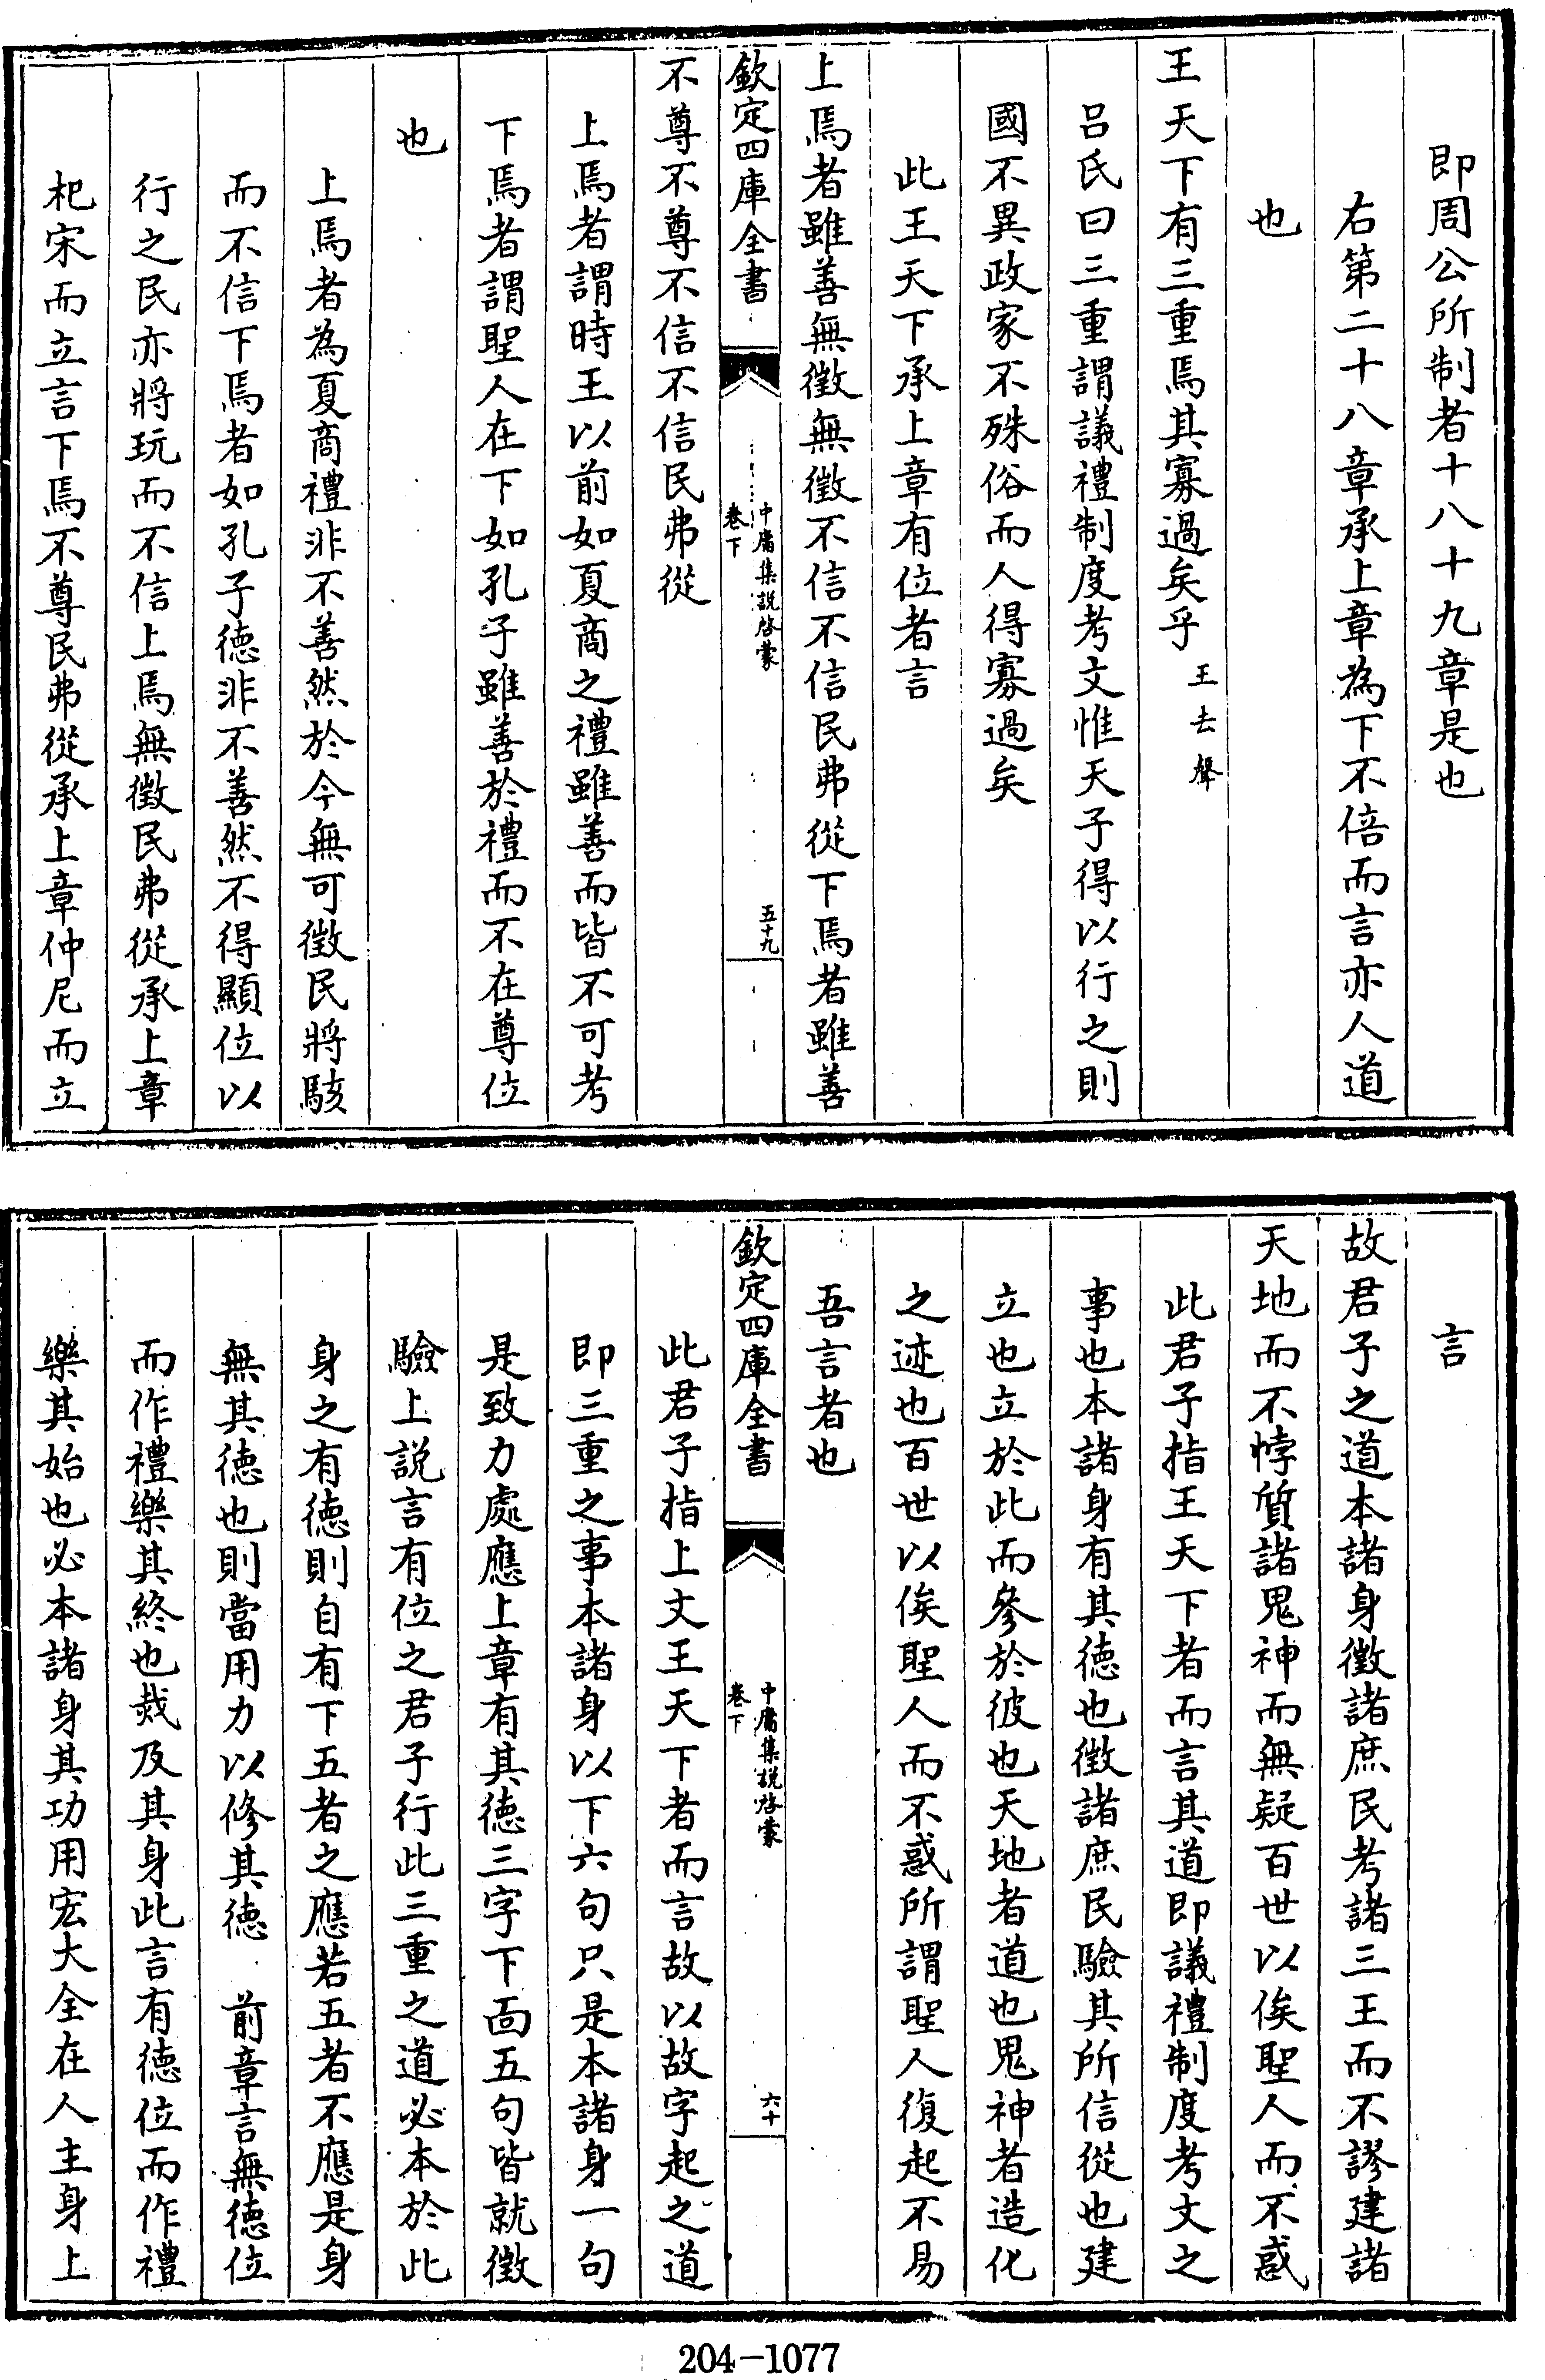 即周公所制者十八十九章是也
右第二十八章承上章為下不倍而言亦人道
也
王天下有三重焉其寡過矣乎王去聲
呂氏曰三重謂議禮制度考文惟天子得以行之則
國不異政家不殊俗而人得寡過矣
此王天下承上章有位者言
上焉者雖善無徵無徵不信不信民弗從下焉者雖善
欽定四庫全書
中庸集說啓蒙
卷下
五十九
不尊不尊不信不信民弗從
上焉者謂時王以前如夏商之禮雖善而皆不可考
下焉者謂聖人在下如孔子雖善於禮而不在尊位
也
上焉者為夏商禮非不善然於今無可徵民將駭
而不信下焉者如孔子德非不善然不得顯位以
行之民亦將玩而不信上焉無徵民弗從承上章
杞宋而立言下焉不尊民弗從承上章仲尼而立
言
故君子之道本諸身徵諸庶民考諸三王而不謬建諸
天地而不悖質諸鬼神而無疑百世以俟聖人而不惑
此君子指王天下者而言其道即議禮制度考文之
事也本諸身有其徳也徵諸庶民驗其所信從也建
立也立於此而參於彼也天地者道也鬼神者造化
之迹也百世以俟聖人而不惑所謂聖人復起不易
吾言者也
欽定四庫全書
中庸集說啓蒙
卷下
六十
此君子指上文王天下者而言故以故字起之道
即三重之事本諸身以下六句只是本諸身一句
是致力處應上章有其徳三字下面五句皆就徵
驗上說言有位之君子行此三重之道必本於此
身之有徳則自有下五者之應若五者不應是身
無其徳也則當用力以修其徳 前章言無徳位
而作禮樂其終也烖及其身此言有徳位而作禮
樂其始也必本諸身其功用宏大全在人主身上
204-1077